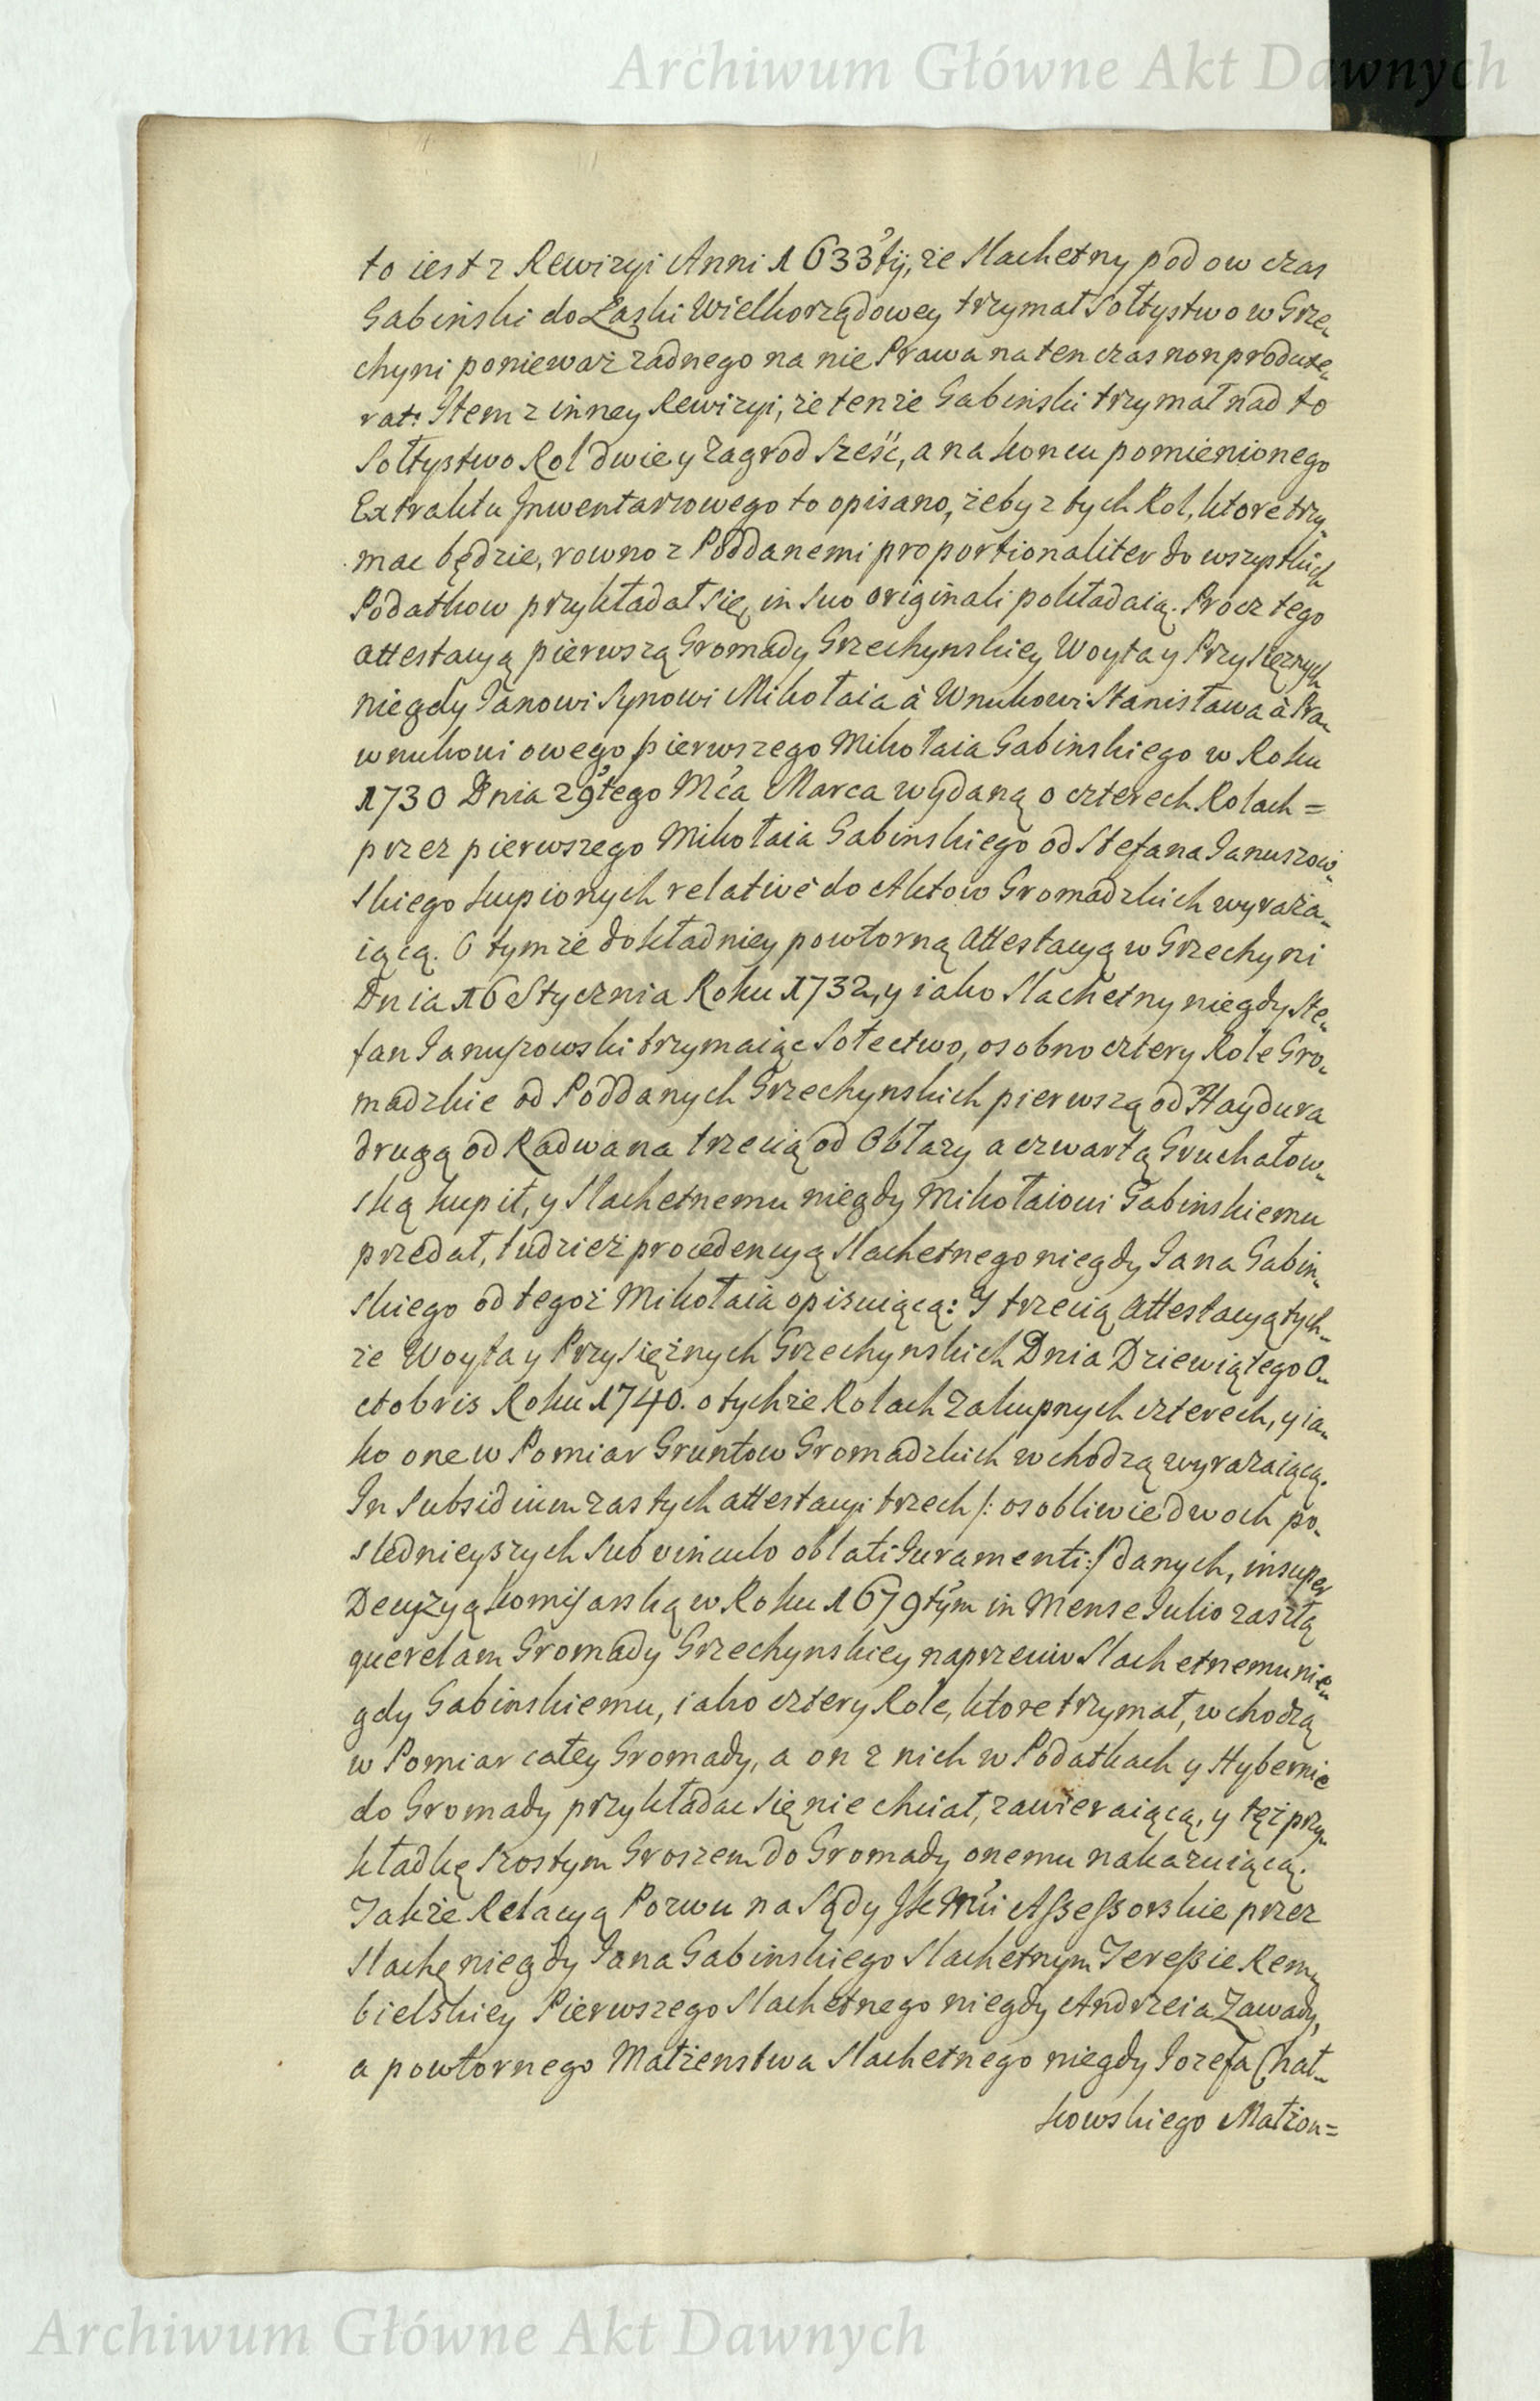 Archiwum Główne Akt Dawnych
to iest z Rewizyi Anni 1633tÿ, że Slachetny pod ow czas
Gabinski do Łaski Wielkorządowey trzymał Sołtystwo w Grze„
chyni poniewasz zadnego na nie Prawa na ten czas non produxe„
rat: Item z inney Rewizyi, że tenże Gabinski trzymał nad to
Sołtystwo Rol dwie y Zagrod sześć, a na koncu pomienionego
Extraktu Inwentarzowego to opisano, żeby z tych Rol, ktore trzy„
mac będzie, rowno z Poddanemi proportionaliter do wszystkich
Podatkow przykładał się, in suo originali pokładaią. Procz tego
attestacyą pierwszą Gromady Grzechynskiey Woyta y Przysiężnych
niegdy Janowi Synowi Mikołaia à Wnukowi Stanisława à Pra„
wnukowi owego pierwszego Mikołaia Gabinskiego w Roku
1730 Dnia 29tego Mca Marca wydaną o czterech Rolach=
przez pierwszego Mikołaia Gabinskiego od Stefana Januszow„
skiego kupionych relativè do Aktow Gromadzkich wyraża„
iącą. O tymże dokładniey powtorną Attestacyą w Grzechyni
Dnia 16 Stycznia Roku 1732, y iako Slachetny niegdy Ste„
fan Januszowski trzymaiąc Sołectwo, osobno cztery Role Gro„
madzkie od Poddanych Grzechynskich pierwszą od Haydura
drugą od Radwana trzecią od Obtazy a czwartą Gruchałow„
ską kupił, y Slachetnemu niegdy Mikołaiowi Gabinskiemu
przedał, tudzież procedencyą Slachetnego niegdy Jana Gabin„
skiego od tegoż Mikołaia opisuiącą: Y trzecią Attestacyą tych„
że Woyta y Przysiężnych Grzechynskich Dnia Dziewiątego O„
ctobris Roku 1740. o tychże Rolach zakupnych czterech, y ia„
ko one w Pomiar Gruntow Gromadzkich wchodzą wyrażaiącą.
In Subsidium zas tych attestacyi trzech /: osobliwie dwoch po„
slednieyszych sub vinculo oblati Juramenti :/ danych, insuper
Decyzyą Komisarską w Roku 1679tym in Mense Julio zaszłą
querelam Gromady Grzechynskiey naprzeciw Slachetnemu nie„
gdy Gabinskiemu, iako cztery Role, ktore trzymał, wchodzą
w Pomiar całey Gromady, a on z nich w Podatkach y Hybernie
do Gromady przykładac się nie chciał, zawieraiącą, y tęż przy„
kładkę szostym Groszem do Gromady onemu nakazuiącą.
Takze Relacyą Pozwu na Sądy JKMci Assessorskie przez
Slachę niegdy Jana Gabinskiego Slachetnym Teressie Remy
bielskiey Pierwszego Slachetnego niegdy Andrzeia Zawady,
a powtornego Małżenstwa Slachetnego niegdy Jozefa Chał„
kowskiego Małżon=
Archiwum Główne Akt Dawnych